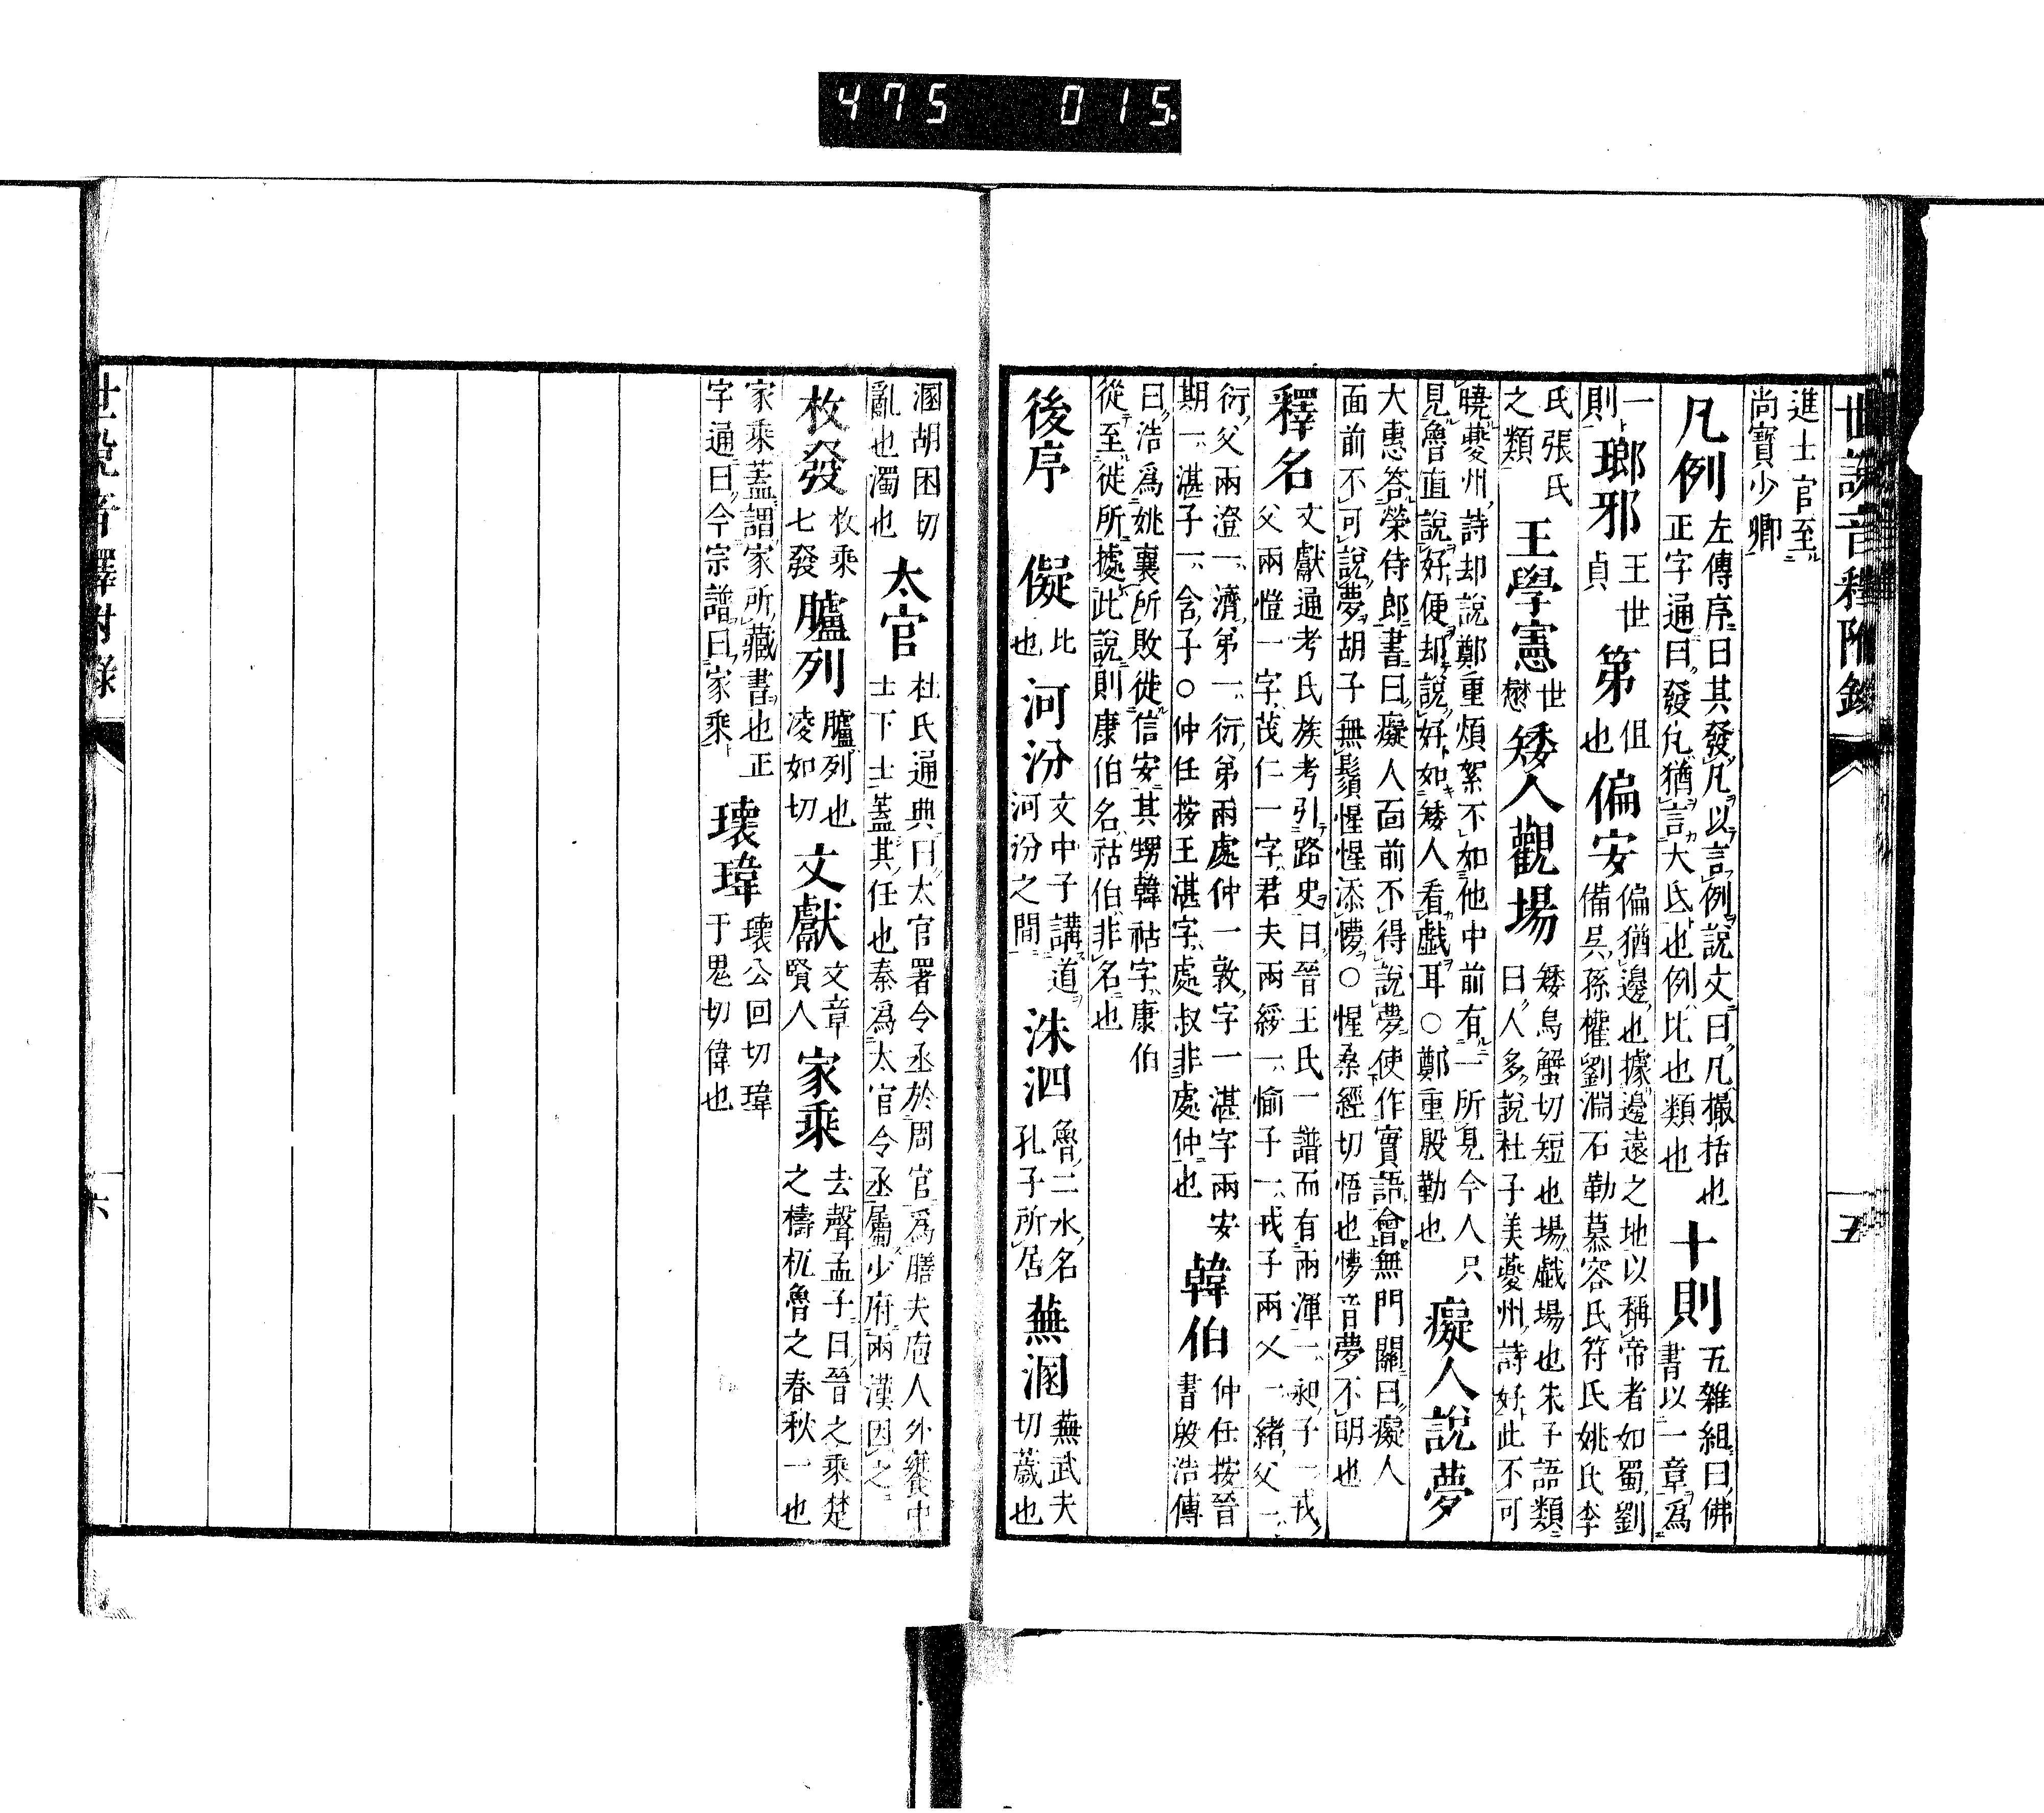 475 015
世說音釋附錄
五
進士官至
尚寶少卿
凡例 左傳序曰其發凡以言例說文曰凡撮括也
正字通曰發凡猶言大氐也例比也類也 十則 五雜組曰佛
書以一章爲
一
則 瑯邪 王世
貞 第 但
也 偏安 偏猶邊也據邊遠之地以稱帝者如蜀劉
備吳孫權劉淵石勒慕容氏符氏姚氏李
氏張氏
之類 王學憲 世
懋 矮人觀場 矮烏蟹切短也場戲場也朱子語類
曰人多說杜子美夔州詩好此不可
曉夔州詩却說鄭重煩絮不如他中前有一所見今人只
見魯直說好便却說好如矮人看戲耳○鄭重殷勤也 癡人說夢
大惠答榮侍郎書曰癡人面前不得說夢使作實語會無門關曰癡人
面前不可說夢胡子無鬚惺惺添懜○惺桑經切悟也懜音夢不明也
釋名 文獻通考氏族考引路史曰晉王氏一譜而有兩渾一昶子一戎
父兩愷一字茂仁一字君夫兩綏一愉子一戎子兩乂一緒父一
衍父兩澄一濟弟一衍弟兩處仲一敦字一湛字兩安
期一湛子一含子○仲任按王湛字處叔非處仲也 韓伯 仲任按晉
書殷浩傳
曰浩爲姚襄所敗徙信安其甥韓祜字康伯
從至徙所據此說則康伯名祜伯非名也
後序 儗 比
也 河汾 文中子講道
河汾之間 洙泗 魯二水名
孔子所居 蕪溷 蕪武夫
切薉也
溷胡困切
亂也濁也 太官 杜氏通典曰太官署令丞於周官爲膳夫庖人外饔中
士下士蓋其任也秦爲太官令丞屬少府兩漢因之
枚發 枚乘
七發 臚列 臚列也
凌如切 文獻 文章
賢人 家乘 去聲孟子曰晉之乘楚
之檮杌魯之春秋一也
家乘蓋謂家所藏書也正
字通曰今宗譜曰家乘 瓌瑋 瓌公回切瑋
于鬼切偉也
世說音釋附錄
六